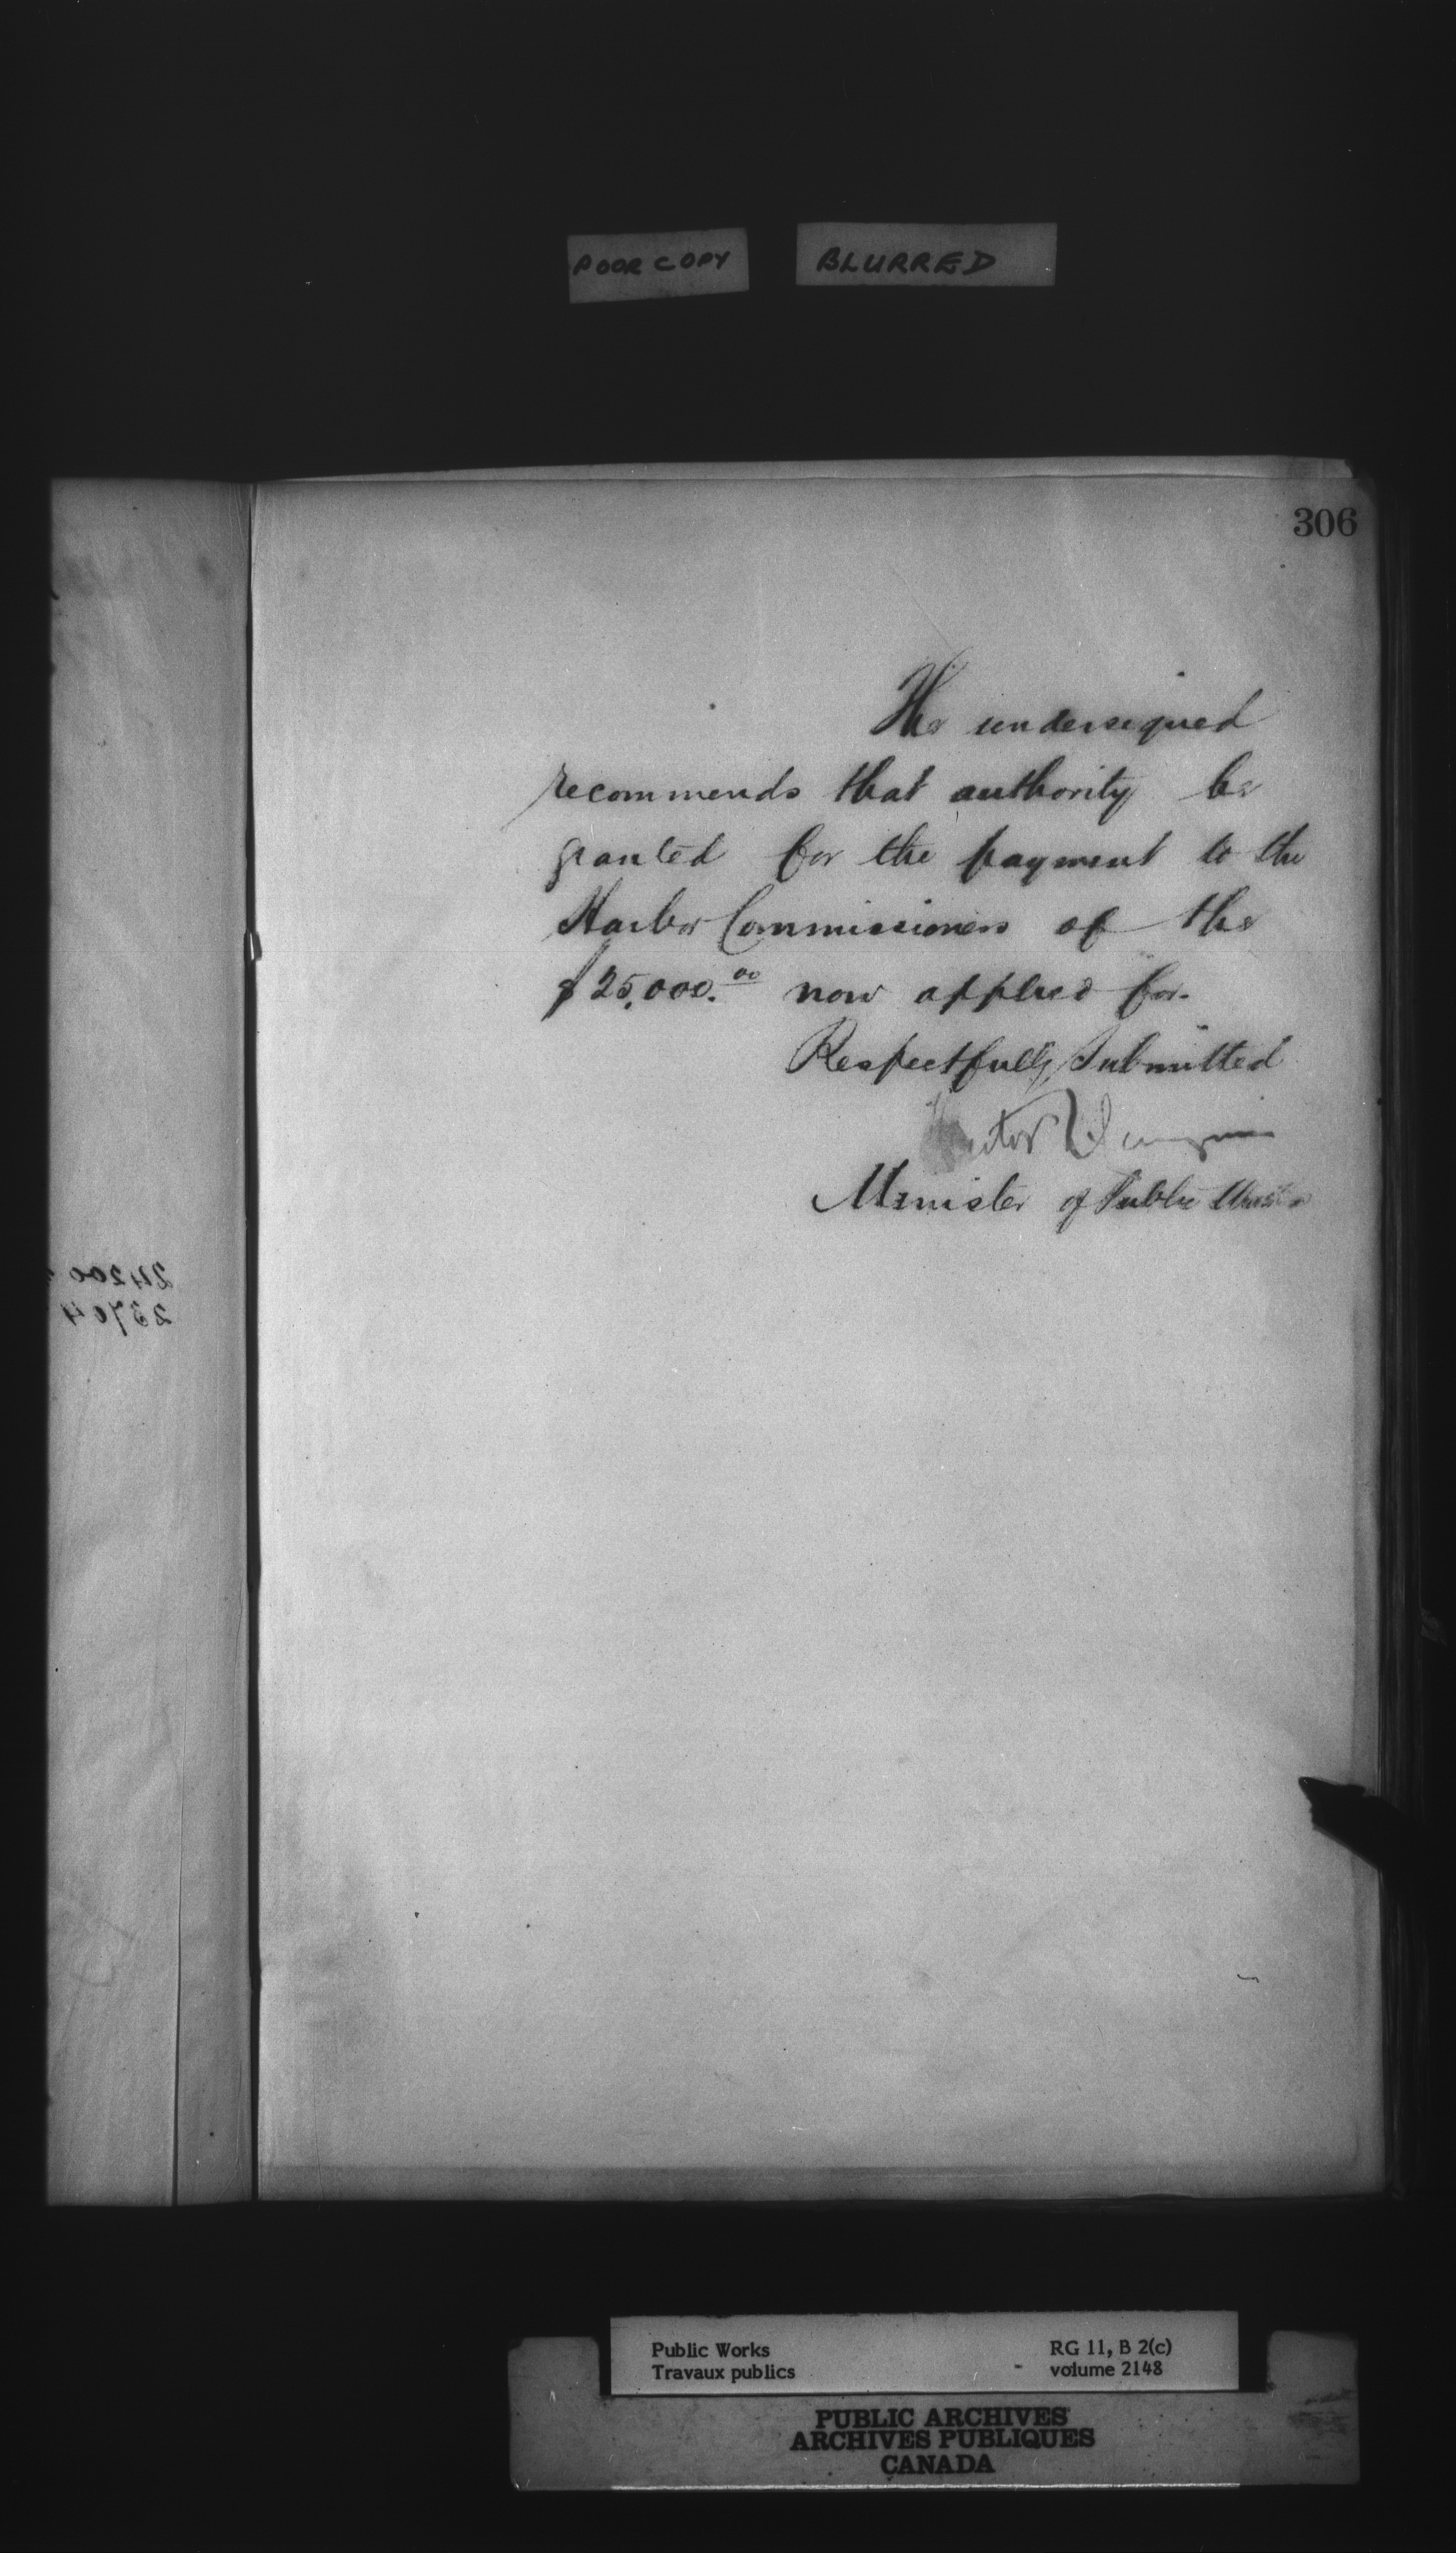 POOR COPY
BLURRED
306
The undersigned
recommends that authority be
granted for the payment to the
Harbor Commissioners of the
$25,000.00 now applied for.
Respectfully Submitted
Hector Langevin
Minister of Public Works
24200
23704
Public Works
Travaux publics
RG 11, B 2(c)
volume 2148
PUBLIC ARCHIVES
ARCHIVES PUBLIQUES
CANADA